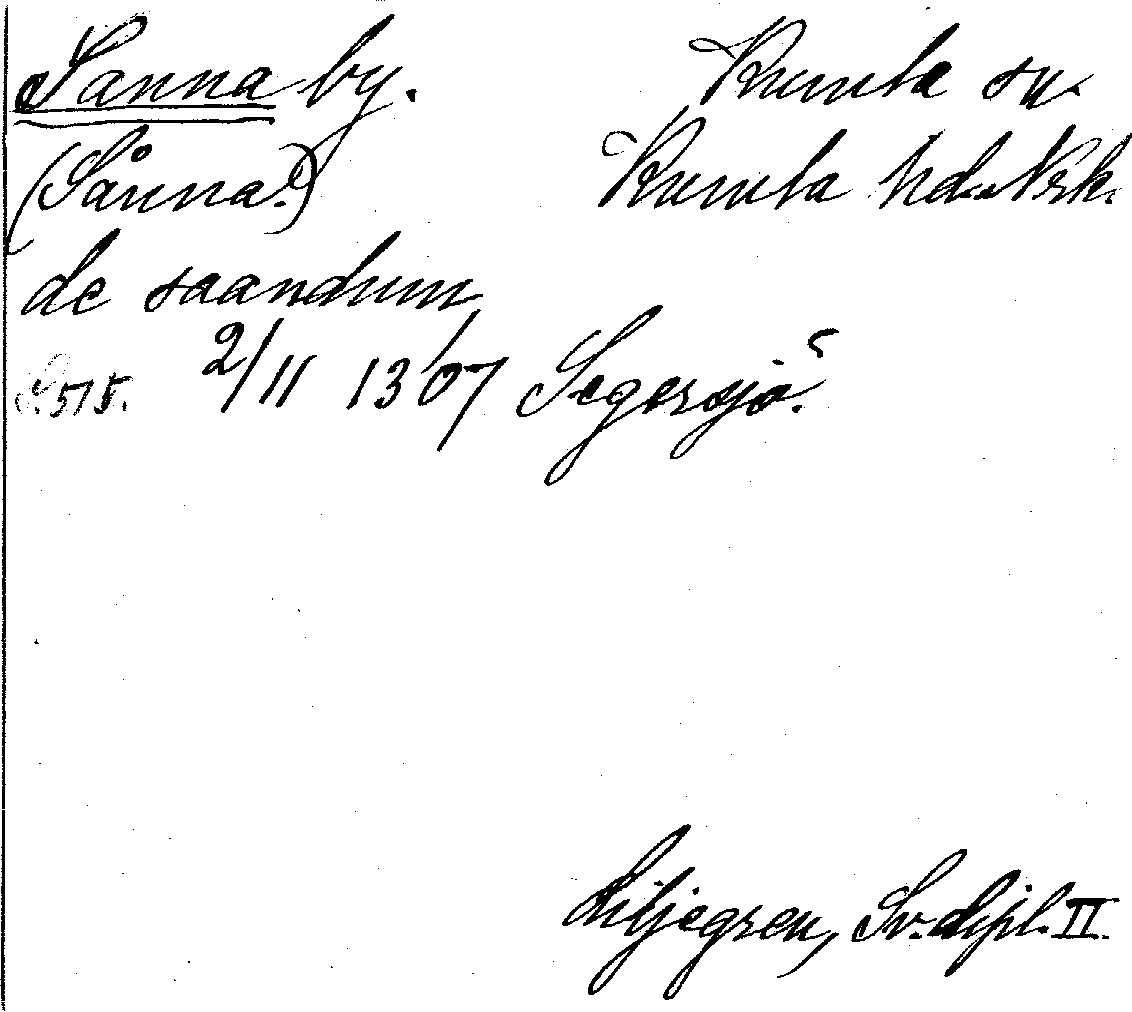 Sanna by. Kumla sn.
(Sånna?) Kumla hd. Nrk.
de saandum
S. 515. 2/11 1307 Segersjö.
Liljegren, Sv. dipl. II.